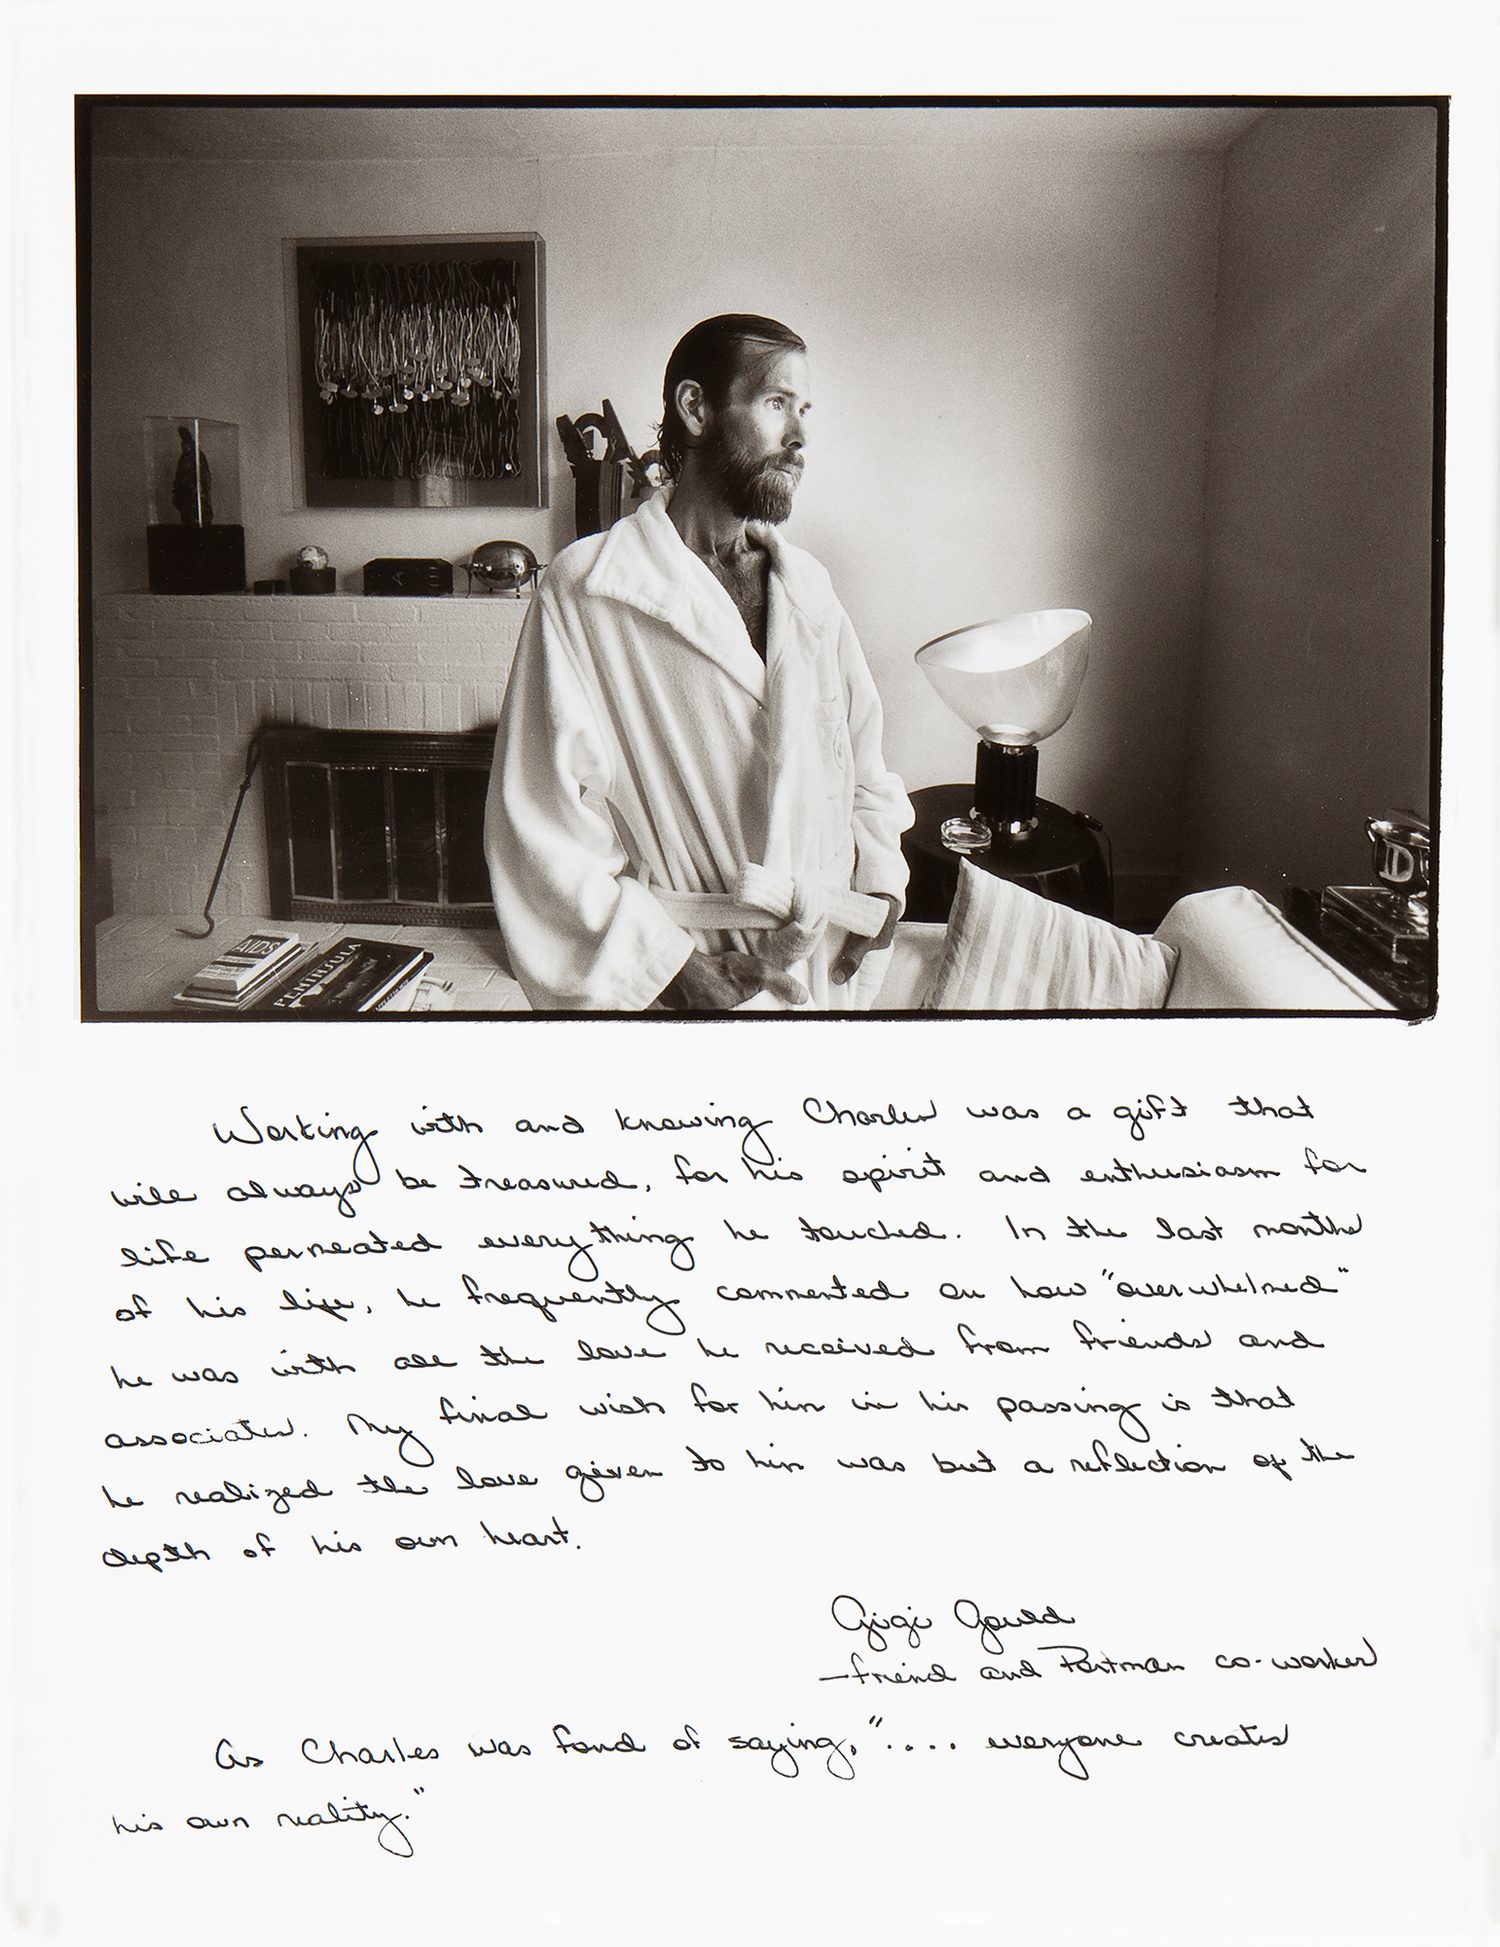 AIDS
PENINSULA
Working with and knowing Charles was a gift that
will always be treasured, for his spirit and enthusiasm for
life permeated everything he touched. In the last months
of his life, he frequently commented on how "overwhelmed"
he was with all the love he received from friends and
associates. My final wish for him in his passing is that
he realized the love given to him was but a reflection of the
depth of his own heart.
Gigi Gould
—friend and Portman co-worker
As Charles was fond of saying, ".... everyone creates
his own reality."